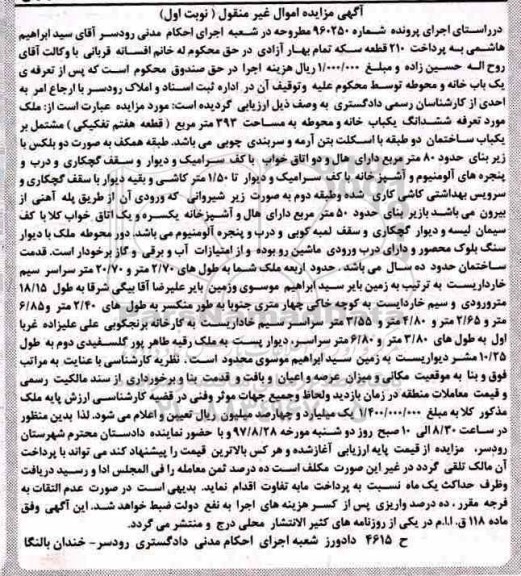 آگهی مزایده اموال غیر منقول ( نوبت اول)
درراستای اجرای پرونده شماره ۹۶۰۲۵۰ مطروحه در شعبه اجرای احکام مدنی رودسر آقای سید ابراهیم
هاشمی به پرداخت ۲۱۰ قطعه سکه تمام بهار آزادی در حق محکوم له خانم افسانه قربانی با وکالت آقای
روح اله حسین زاده و مبلغ ۱/۰۰۰/۰۰۰ ریال هزینه اجرا در حق صندوق محکوم است که پس از تعرفه ی
یک باب خانه و محوطه توسط محکوم علیه و توقیف آن در اداره ثبت اسناد و املاک رودسر با ارجاع امر به
احدی از کارشناسان رسمی دادگستری به وصف ذیل ارزیابی گردیده است: مورد مزایده عبارت است از: ملک
مورد تعرفه ششدانگ یکباب خانه و محوطه به مساحت ۳۹۳ متر مربع ( قطعه هفتم تفکیکی ) مشتمل بر
یکباب ساختمان دو طبقه با اسکلت بتن آرمه و سربندی چوبی می باشد. طبقه همکف به صورت دو بلکس با
زیر بنای حدود ۸۰ متر مربع دارای هال و دو اتاق خواب با کف سرامیک و دیوار و سقف گچکاری و درب و
پنجره های آلومنیوم و آشپز خانه با کف سرامیک و دیوار تا ۱/۵۰ متر کاشی و بقیه دیوار با سقف گچکاری و
سرویس بهداشتی کاشی کاری شده وطبقه دوم به صورت زیر شیروانی که ورودی آن از طریق پله آهنی از
بیرون می باشد. بازیر بنای حدود ۵۰ متر مربع دارای هال و آشپزخانه یکسره و یک اتاق خواب کلا با کف
سیمان لیسه و دیوار گچکاری و سقف لمبه کوبی و درب و پنجره آلومنیوم می باشد. دور محوطه ملک با دیوار
سنگ بلوک محصور و دارای درب ورودی ماشین رو بوده و از امتیازات آب و برقی و گاز برخودار است. قدمت
ساختمان حدود ده سال می باشد . حدود اربعه ملک شما به طول های ۲/۷۰ متر و ۲۰/۷۰ متر سراسر سیم
خارداریست به ترتیب به زمین بایر سید ابراهیم موسوی وزمین بایر علیرضا آقا بیگی شرقا به طول ۱۸/۱۵
مترورودی و سیم خاردارست به کوچه خاکی چهار متری جنوبا به طور منکسر به طول های ۲/۴۰ متر و ۶/۸۵
متر و ۲/۶۵ متر و ۴/۸۰ متر و ۳/۵۵ متر سراسر سیم خاداریست به کارخانه برنجکوبی علی علیزاده غربا
اول به طول های ۳/۸۰ متر و ۶/۸۰ متر سراسر، دیوار پیست به ملک رقیه طاهر پور گلسفیدی دوم به طول
۱۰/۲۵ مشر دیواریست به زمین سید ابراهیم موسوی محدود است. نظریه کارشناسی با عنایت به مراتب
فوق و بنا به موقعیت مکانی و میزان عرصه و اعیان و بافت و قدمت بنا و برخورداری از سند مالکیت رسمی
و قیمت معاملات منطقه در زمان بازدید ولحاظ وجمیع جهات موثر وفنی در قضیه کارشناسی ارزش پایه ملک
مذکور کلا به مبلغ ۱/۴۰۰/۰۰۰/۰۰۰ یک میلیارد و چهارصد میلیون ریال تعیین و اعلام می شود. لذا بدین منظور
در ساعت ۸/۳۰ الی ۱۰ صبح روز دو شنبه مورخه ۹۷/۸/۲۸ و با حضور نماینده دادستان محترم شهرستان
رودسر، مزایده از قیمت پایه ارزیابی آغازشده و هر کس بالاترین قیمت را پیشنهاد کند می تواند با پرداخت
آن مالک تلقی گردد در غیر این صورت مکلف است ده درصد ثمن معامله را فی المجلس ادا و رسید دریافت
وظرف حداکثر یک ماه نسبت به پرداخت مابه تفاوت اقدام نماید. بدیهی است در صورت عدم التقات به
فرجه مقرر ، ده درصد واریزی پس از کسر هزینه های اجرا به نفع دولت ضبط خواهد شد. این آگهی وفق
ماده ۱۱۸ ق.ا.ا.م در یکی از روزنامه های کثیر الانتشار محلی درج و منتشر می گردد.
ح ۴۶۱۵ دادورز شعبه اجرای احکام مدنی دادگستری رودسر- خندان بالنگا